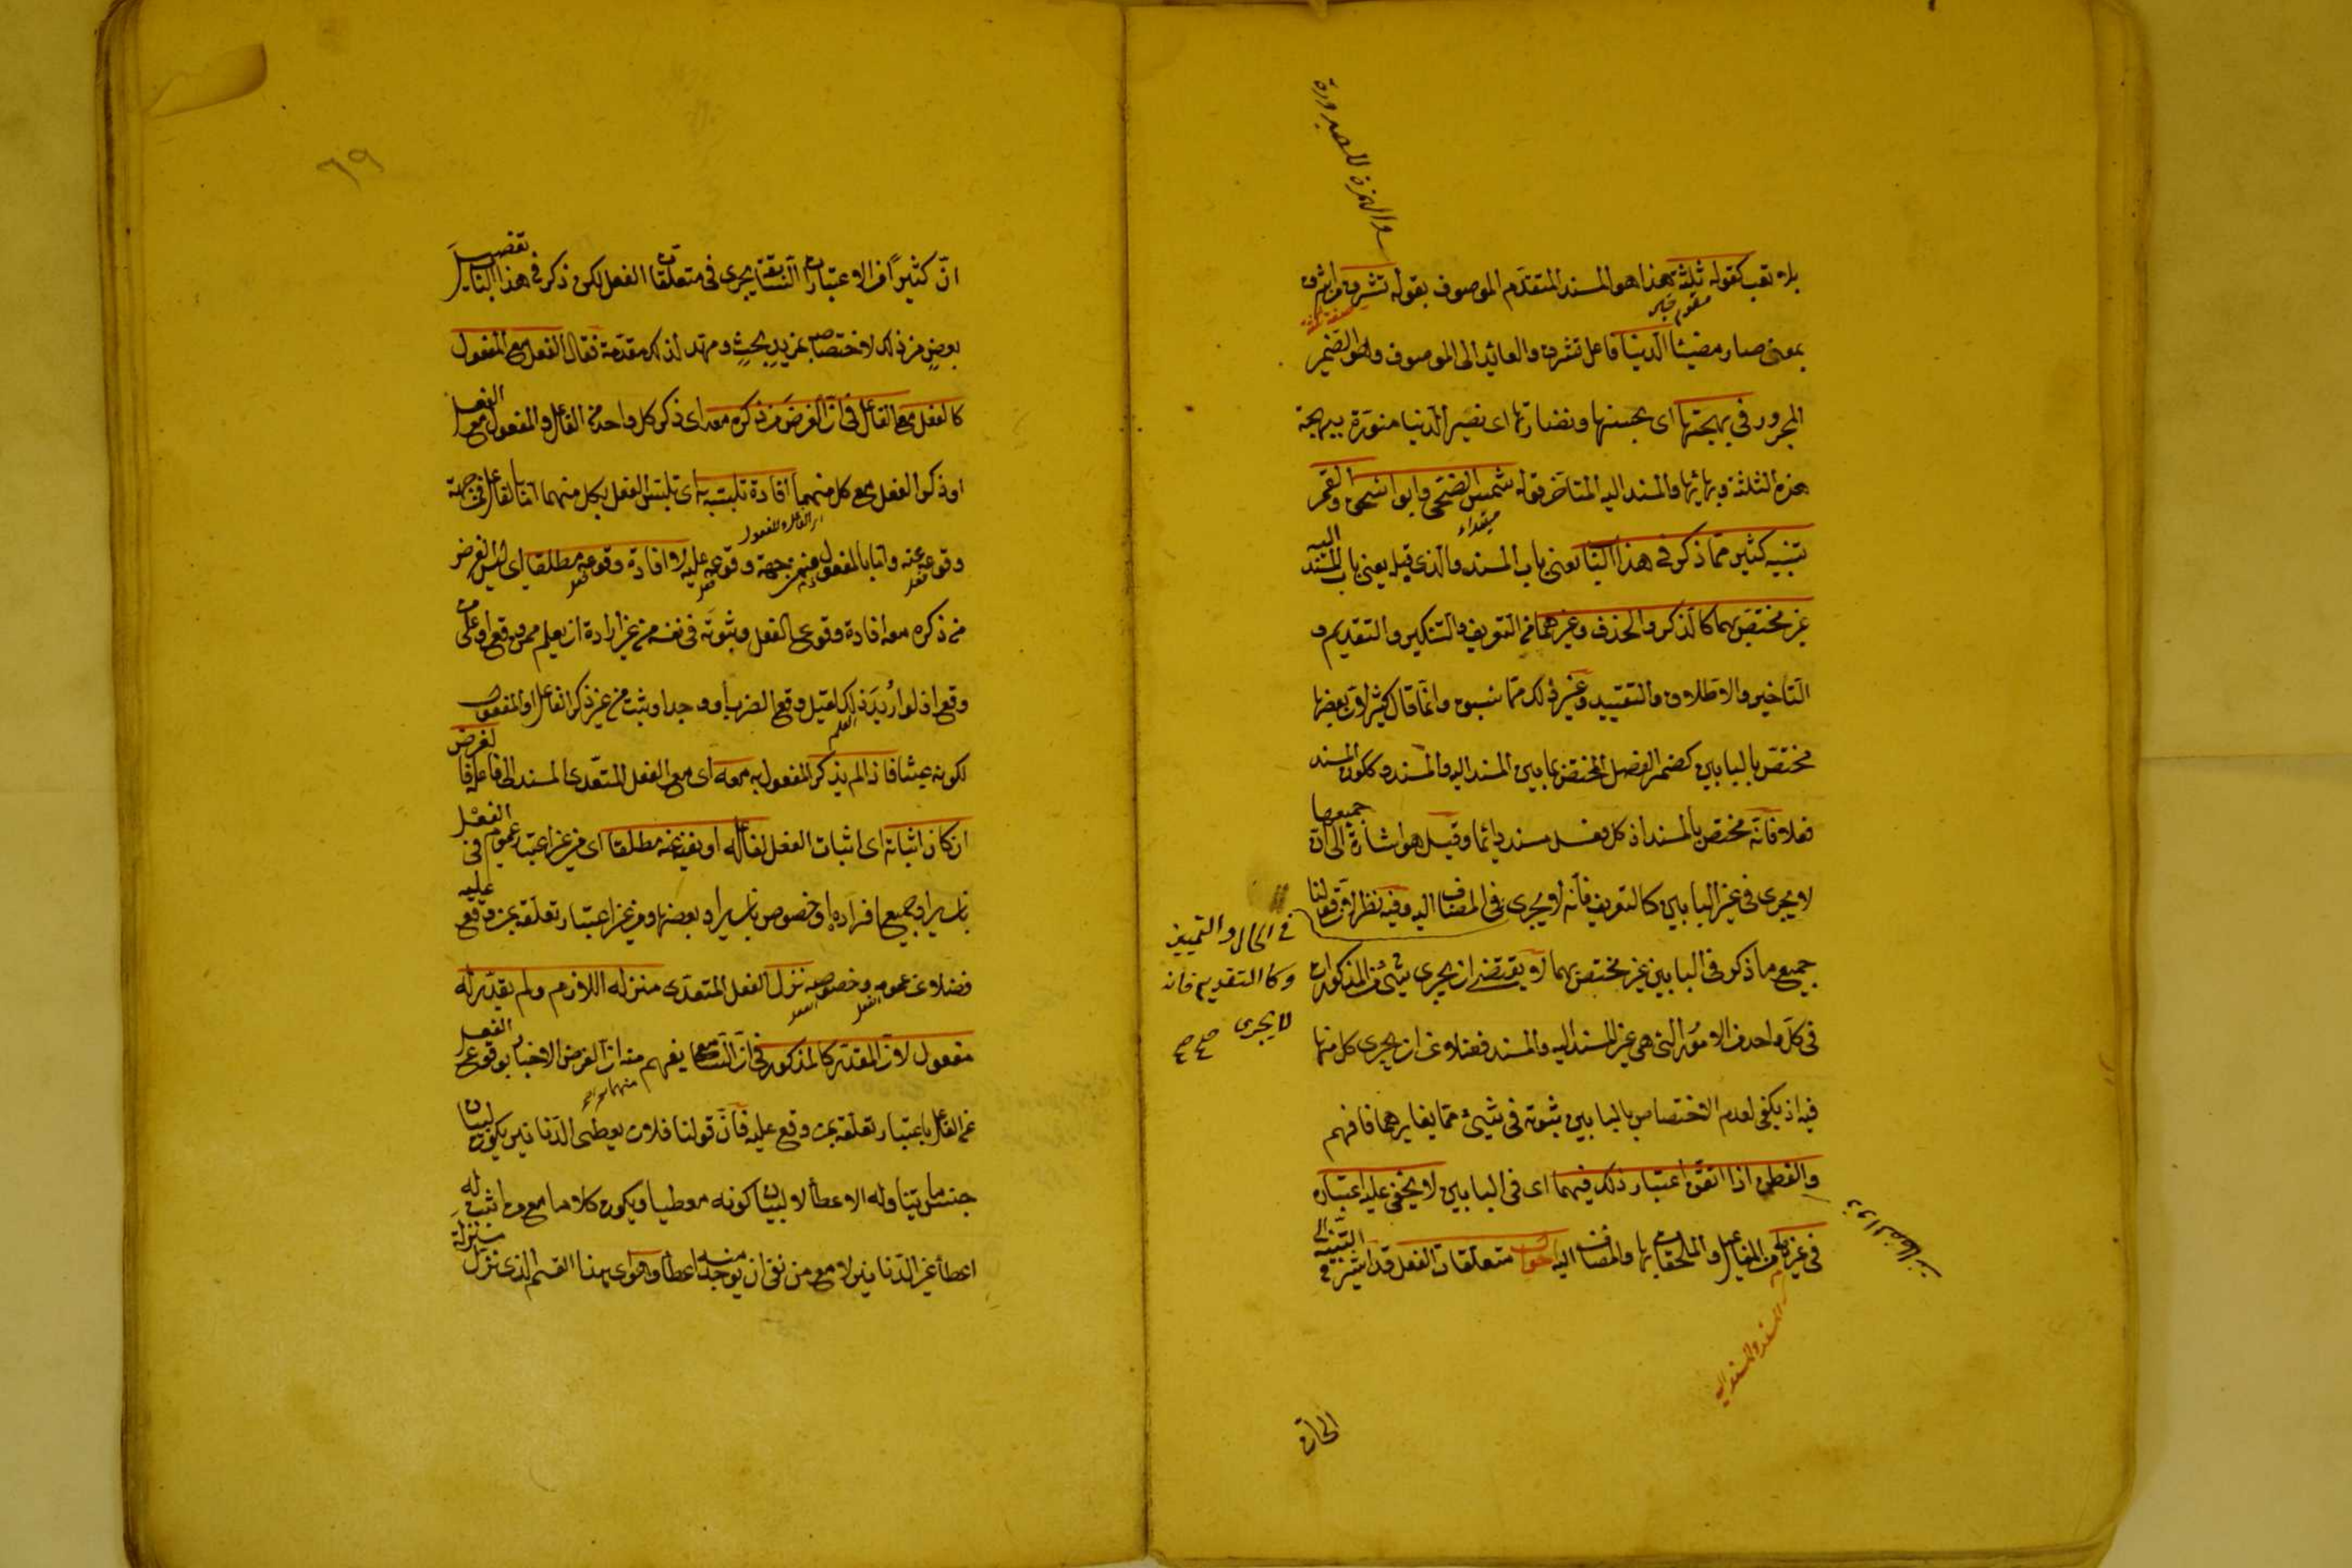 والهمزة للصيرورة
بلا تعب كقوله ثلثة هذا هو المسند المتقدم الموصوف بقوله تشرق من اشرق
بمعنى صار مضيئا الدنيا فاعل تشرق والعائد الى الموصوف هو الضمير
المجرور فى ببهجتها اى بحسنها ونضارتها اى تصير الدنيا منورة ببهجة
هذه الثلثة وبهائها والمسند اليه المتأخر قوله شمس الضحى وابو اسحق والقمر
مبتداء
تنبيه كثير مما ذكر فى هذا الباب يعنى باب المسند والذى قبله يعنى باب المسند اليه
غير مختص بهما كالذكر والحذف وغيرهما من التعريف والتنكير والتقديم و
التاخير والاطلاق والتقييد وغير ذلك مما سبق وانما قال كثير لان بعضها
مختص بالبابين كضمير الفصل المختص بما بين المسند اليه والمسند وككون المسند
فعلا فانه مختص بالمسند اذ كل فعل مسند دائما وقيل هو اشارة الى ان جميعها
لا يجرى فى غير البابين كالتعريف فانه لا يجرى فى المضاف اليه وفيه نظر لان قولنا
فى الحال والتمييز
وكالتقديم فانه
لا يجرى صح صح
جميع ما ذكر فى البابين غير مختص بهما لا يقتضى ان يجرى شئ من المذكورات
فى كل واحد من الامور التى هى غير المسند اليه والمسند فضلا عن ان يجرى كل منها
فيه اذ يكفى لعدم الاختصاص بالبابين ثبوته فى شيئ مما يغايرهما فافهم
والفطن اذا اتقن اعتبار ذلك فيهما اى فى البابين لا يخفى عليه اعتباره
فى غيرهما من المفاعيل والملحقات بها والمضاف اليه احوال متعلقات الفعل قد اشير فى التنبيه الى
المسند والمسند اليه
٦٩
ان كثيرا من الاعتبارات السابقة يجرى فى متعلقات الفعل لكن ذكر فى هذا الباب تفصيل
بعض من ذلك لاختصاصه بمزيد بحث ومهد لذلك مقدمة فقال الفعل مع المفعول
كالفعل مع الفاعل فى ان الغرض من ذكره معه اى ذكر كل واحد من الفاعل والمفعول مع الفعل
او ذكر الفعل مع كل منهما افادة تلبسه به اى تلبس الفعل بكل منهما اما بالفاعل فمن جهة
اى الفاعل والمفعول
وقوعه عنه واما بالمفعول فمن جهة وقوعه عليه لا افادة وقوعه مطلقا اى ليس الغرض
من ذكره معه افادة وقوع الفعل وثبوته فى نفسه من غير ارادة ان يعلم ممن وقع او على من
وقع اذ لو اريد ذلك لقيل وقع الضرب او وجد او ثبت من غير ذكر الفاعل او المفعول
لكونه عبثا فاذا لم يذكر المفعول به معه اى مع الفعل المتعدى المسند الى فاعله فالغرض
ان كان اثباته اى اثبات الفعل لفاعله او نفيه عنه مطلقا اى من غير اعتبار عموم فى الفعل
بان يراد جميع افراده او خصوص بان يراد بعضها ومن غير اعتبار تعلقه بمن وقع عليه
فضلا عن عمومه وخصوصه نزل الفعل المتعدى منزلة اللازم ولم يقدر له
مفعول لان المقدر كالمذكور فى ان السامع يفهم منه ان الغرض الاخبار بوقوع الفعل
عن الفاعل باعتبار تعلقه بمن وقع عليه فان قولنا فلان يعطى الدنانير يكون لبيان
جنس ما يتناوله الاعطاء لا لبيان كونه معطيا ويكون كلاما مع من اثبت له
اعطاء غير الدنانير لا مع من نفى ان يوجد منه اعطاء وهو اى هذا القسم الذى نزل منزلة